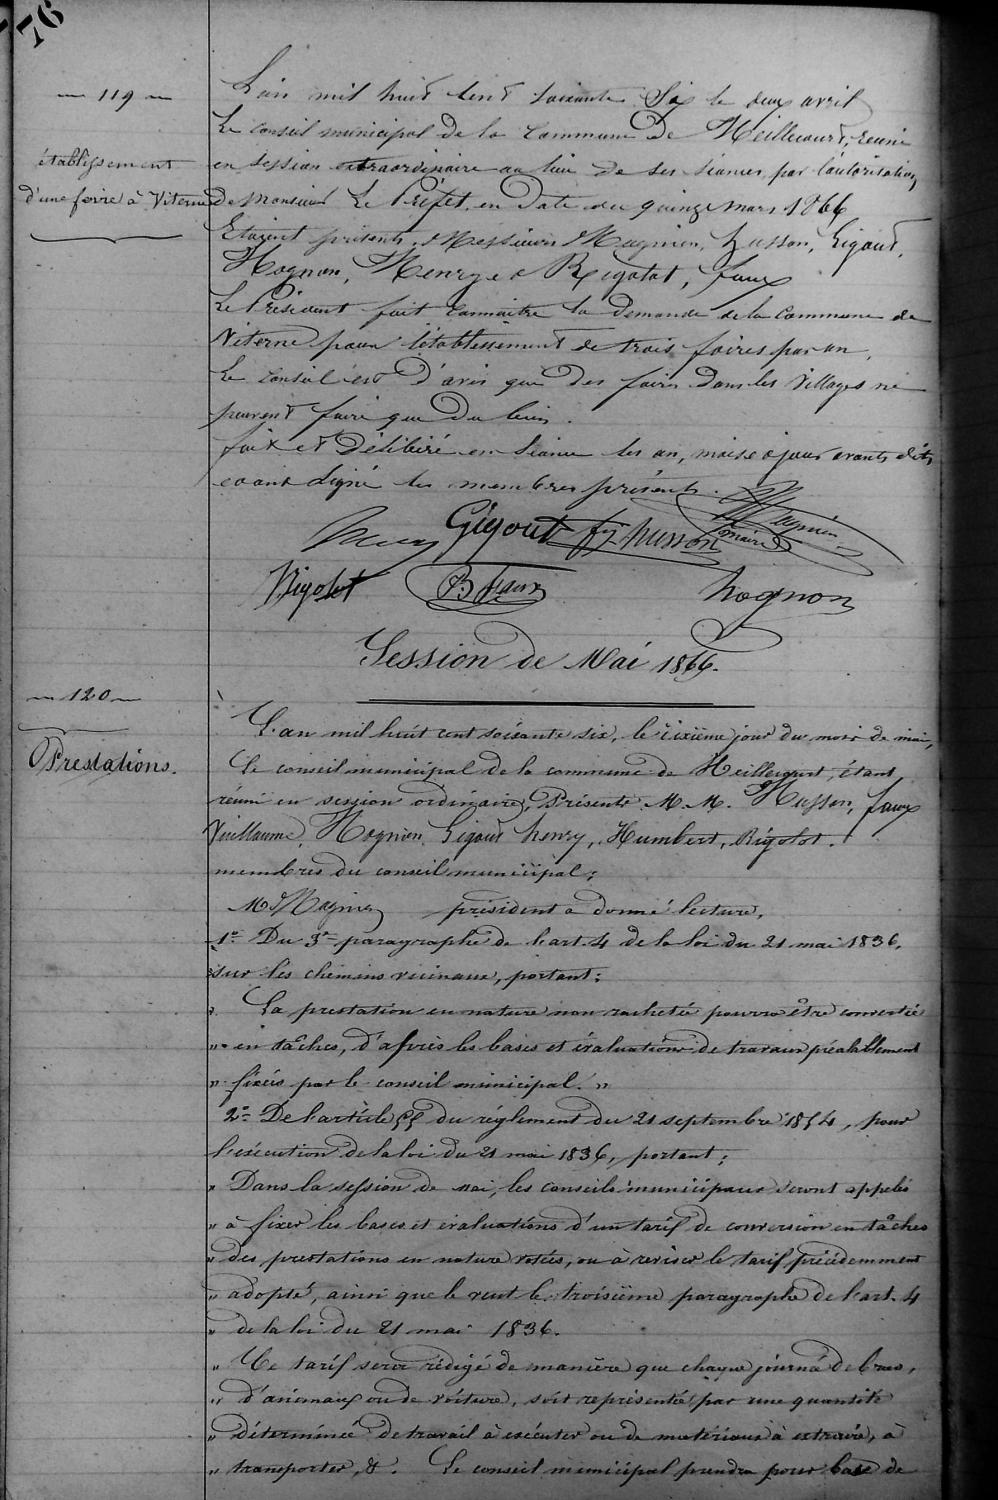 76
— 119 —
établissement
d'une foire à Viterne
L'an mil huit cent soixante Six le deux avril
Le conseil municipal de la Commune De Heillecourt, réuni
en session extraordinaire au lieu de ses séances, par l'autorisation
de Monsieur Le Préfet, en Date du quinze mars 1866
Etaient présents, Messieurs Magnien, husson, Gigout,
Hognon, Henry, Rigolot, faux
Le Président fait connaître la Demande de la Commune de
Viterne pour l'établissement de trois foires par an,
Le Conseil est D'avis que Des foires Dans les Villages ne
peuvent faire que du bien.
fait et Délibéré en séance les an, mois & jour avants dits
et ont Signé les membres présents.
Henry Gigout husson Magnien
maire
Rigolot B faux hognon
Session de Mai 1866.
— 120 —
Prestations.
L'an mil huit cent soixante six, le dixième jour du mois de mai,
Le conseil municipal de la commune de Heillecourt, étant
réuni en session ordinaire, Présents M. M. Husson, faux
Vuillaume, Hognon, Gigout henry, Humbert, Rigolot.
membres du conseil municipal;
Mr Magnien président a donné lecture,
1° Du 3e paragraphe de l'art. 4 de la loi du 21 mai 1836,
sur les chemins vicinaux, portant:
" La prestation en nature non rachetée pourra être convertie
" en tâches, d'après les bases et évaluations de travaux préalablement
" fixées par le conseil municipal. "
2° De l'article 55 du réglement du 21 septembre 1854, pour
l'exécution de la loi du 21 mai 1836, portant;
" Dans la session de mai, les conseils municipaux seront appelés
" à fixer les bases et évaluations d'un tarif de conversion en tâches
" des prestations en nature votées, ou à reviser le tarif précédemment
" adopté, ainsi que le veut le troisième paragraphe de l'art. 4
" de la loi du 21 mai 1836.
" Ce tarif sera rédigé de manière que chaque journée de bras,
" d'animaux ou de voiture, soit représentée par une quantité
" déterminée de travail à exécuter ou de matériaux à extraire, à
" transporter, &. Le conseil municipal prendra pour base de